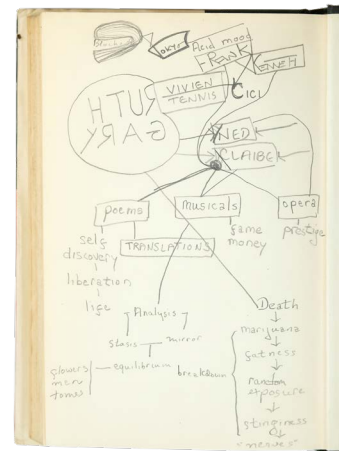 Tokyo
Acid mood
FRANK
KENNETH
VIVIEN
TENNIS
CICI
RUTH
GARY
NED
CLAIBE
poems
musicals
opera
self
discovery
TRANSLATIONS
fame
money
prestige
liberation
life
Analysis
Death
stasis
mirror
marijuana
flowers
men
tomes
equilibrium
breakdown
fatness
random
exposure
stinginess
"nerves"